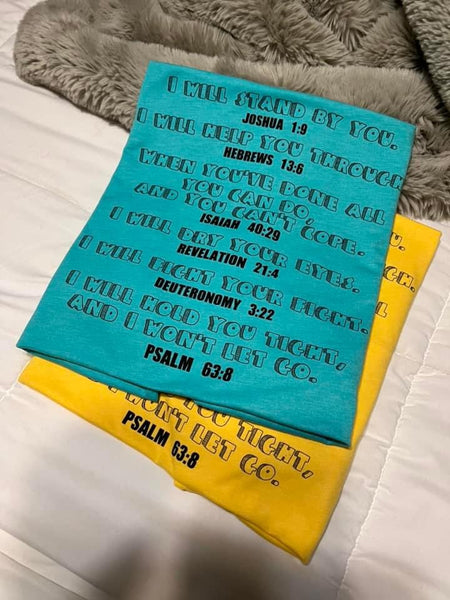 I WILL STAND BY YOU.
JOSHUA 1:9
I WILL HELP YOU THROUGH
HEBREWS 13:6
WHEN YOU'VE DONE ALL
YOU CAN DO,
AND YOU CAN'T COPE.
ISAIAH 40:29
I WILL DRY YOUR EYES.
REVELATION 21:4
I WILL FIGHT YOUR FIGHT.
DEUTERONOMY 3:22
I WILL HOLD YOU TIGHT,
AND I WON'T LET GO.
PSALM 63:8
U.
GH.
YOU TIGHT,
I WON'T LET GO.
PSALM 63:8